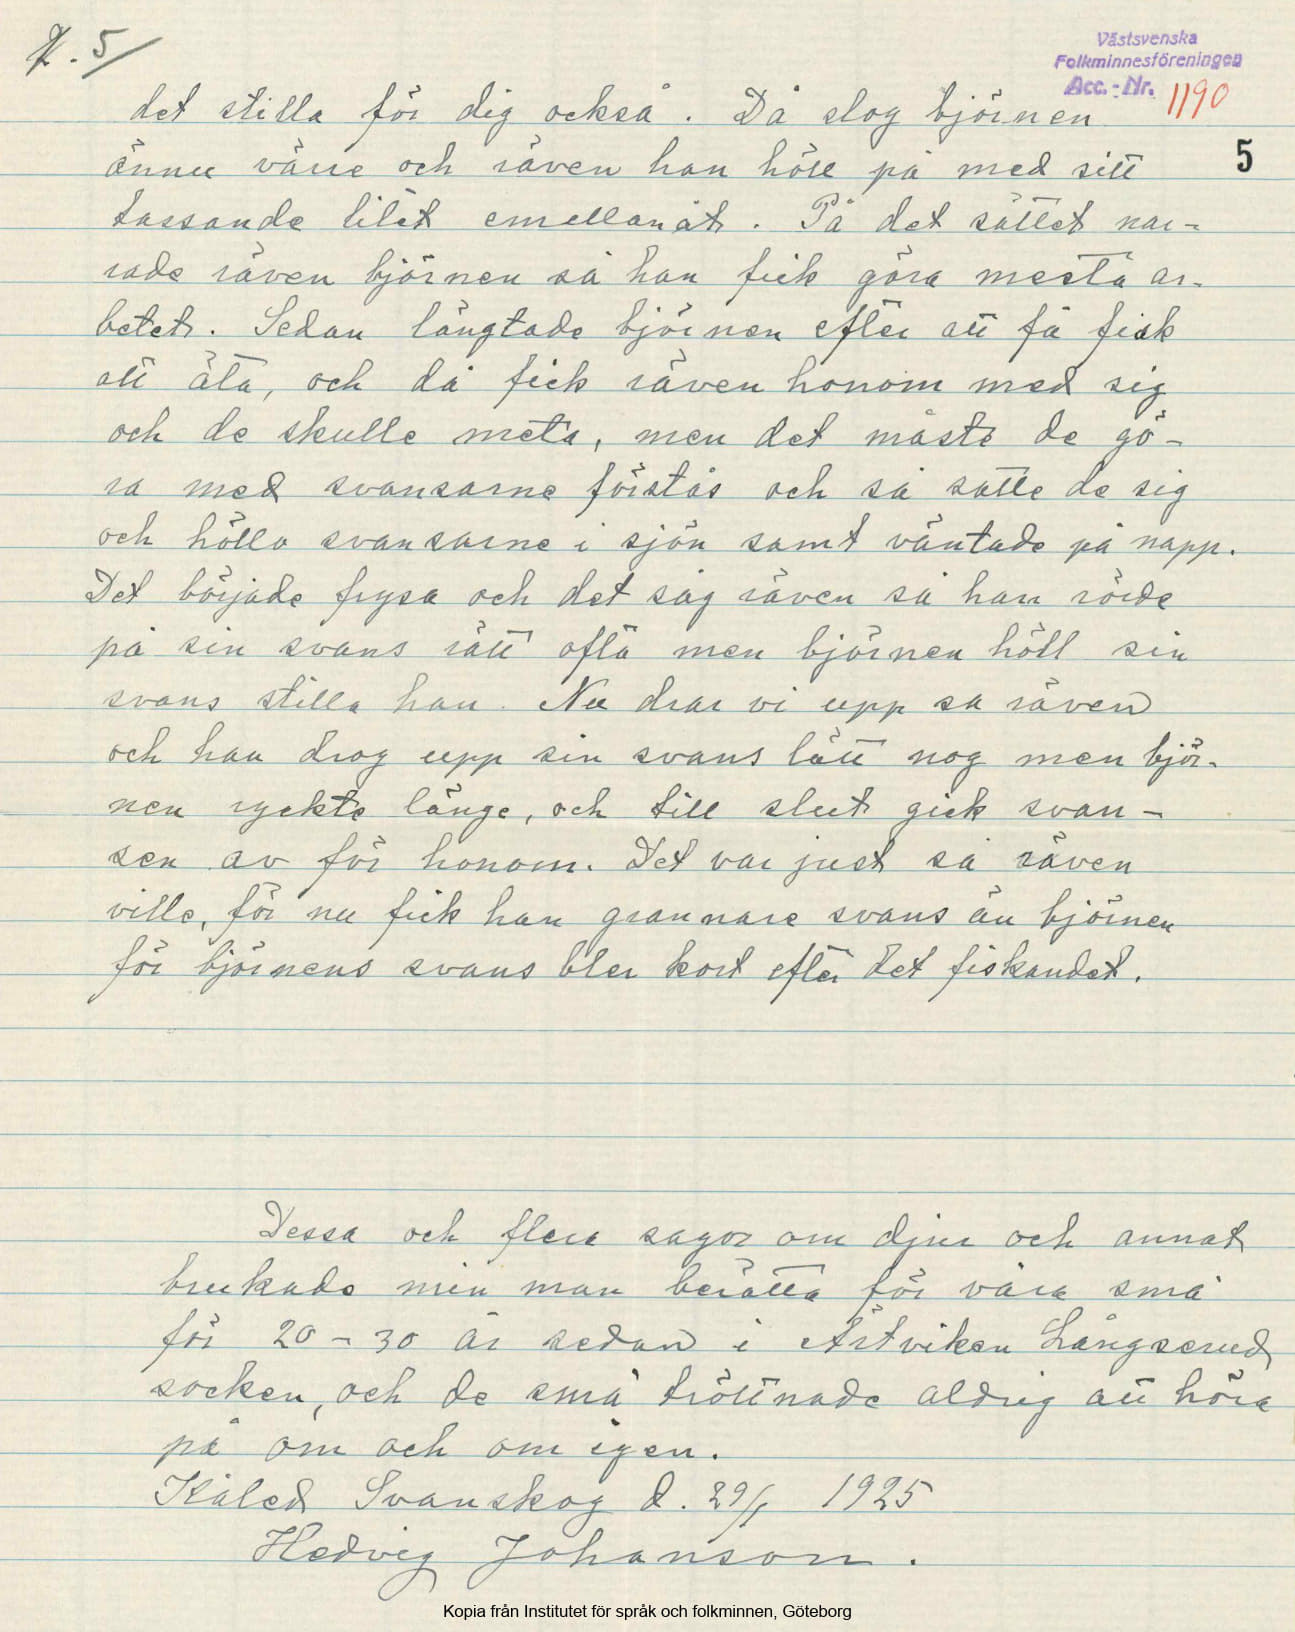 5/
Västsvenska
Folkminnesföreningen
Acc.-Nr. 1190
5
det stilla för dig också. Då slog björnen
ännu värre och räven han höll på med sitt
tassande litet emellanåt. På det sättet nar-
rade räven björnen så han fick göra mesta ar-
betet. Sedan längtade björnen efter att få fisk
att äta, och då fick räven honom med sig
och de skulle meta, men det måste de gö-
ra med svansarne förstås och så satte de sig
och höllo svansarne i sjön samt väntade på napp.
Det började frysa och det såg räven så han rörde
på sin svans rätt ofta men björnen höll sin
svans stilla han. Nu drar vi upp sa räven
och han drog upp sin svans lätt nog men björ-
nen ryckte länge, och till slut gick svan-
sen av för honom. Det var just så räven
ville, för nu fick han grannare svans än björnen
för björnens svans blev kort efter det fiskandet.
Dessa och flera sagor om djur och annat
brukade min man berätta för våra små
för 20-30 år sedan i Ärtviken Långserud
socken, och de små tröttnade aldrig att höra
på om och om igen.
Kåled Svanskog d. 29/1 1925
Hedvig Johanson.
Kopia från Institutet för språk och folkminnen, Göteborg